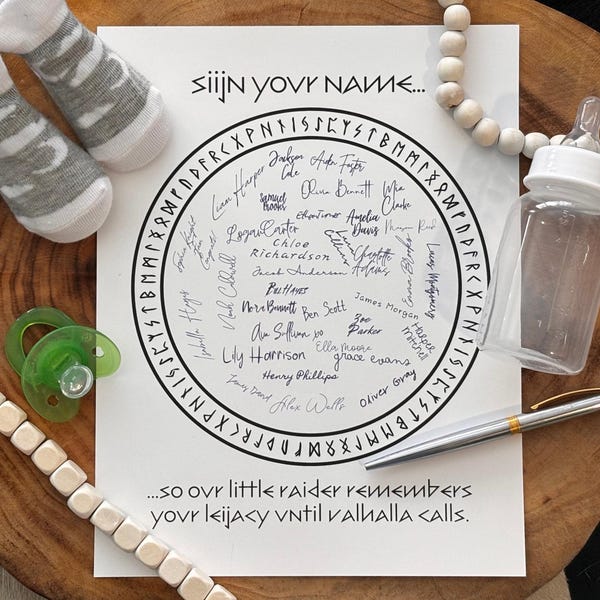 sign your name...
Jackson Cole
Aiden Foster
Liam Harper
Samuel Brooks
Olivia Bennett
Mia Clarke
Ethan Turner
Amelia Davis
Megan Reed
Logan Carter
Chloe Richardson
Charlotte Adams
Emma Brooks
Lucas Montgomery
Noah Caldwell
Jacob Anderson
Bill Hayes
Nora Bennett
Ben Scott
James Morgan
Zoe Parker
Harper Mitchell
Isabella Hayes
Ava Sullivan xo
Ella Moore
Lily Harrison
grace evans
Henry Phillips
Oliver Gray
Alex Wells
...so our little raider remembers
your legacy until valhalla calls.